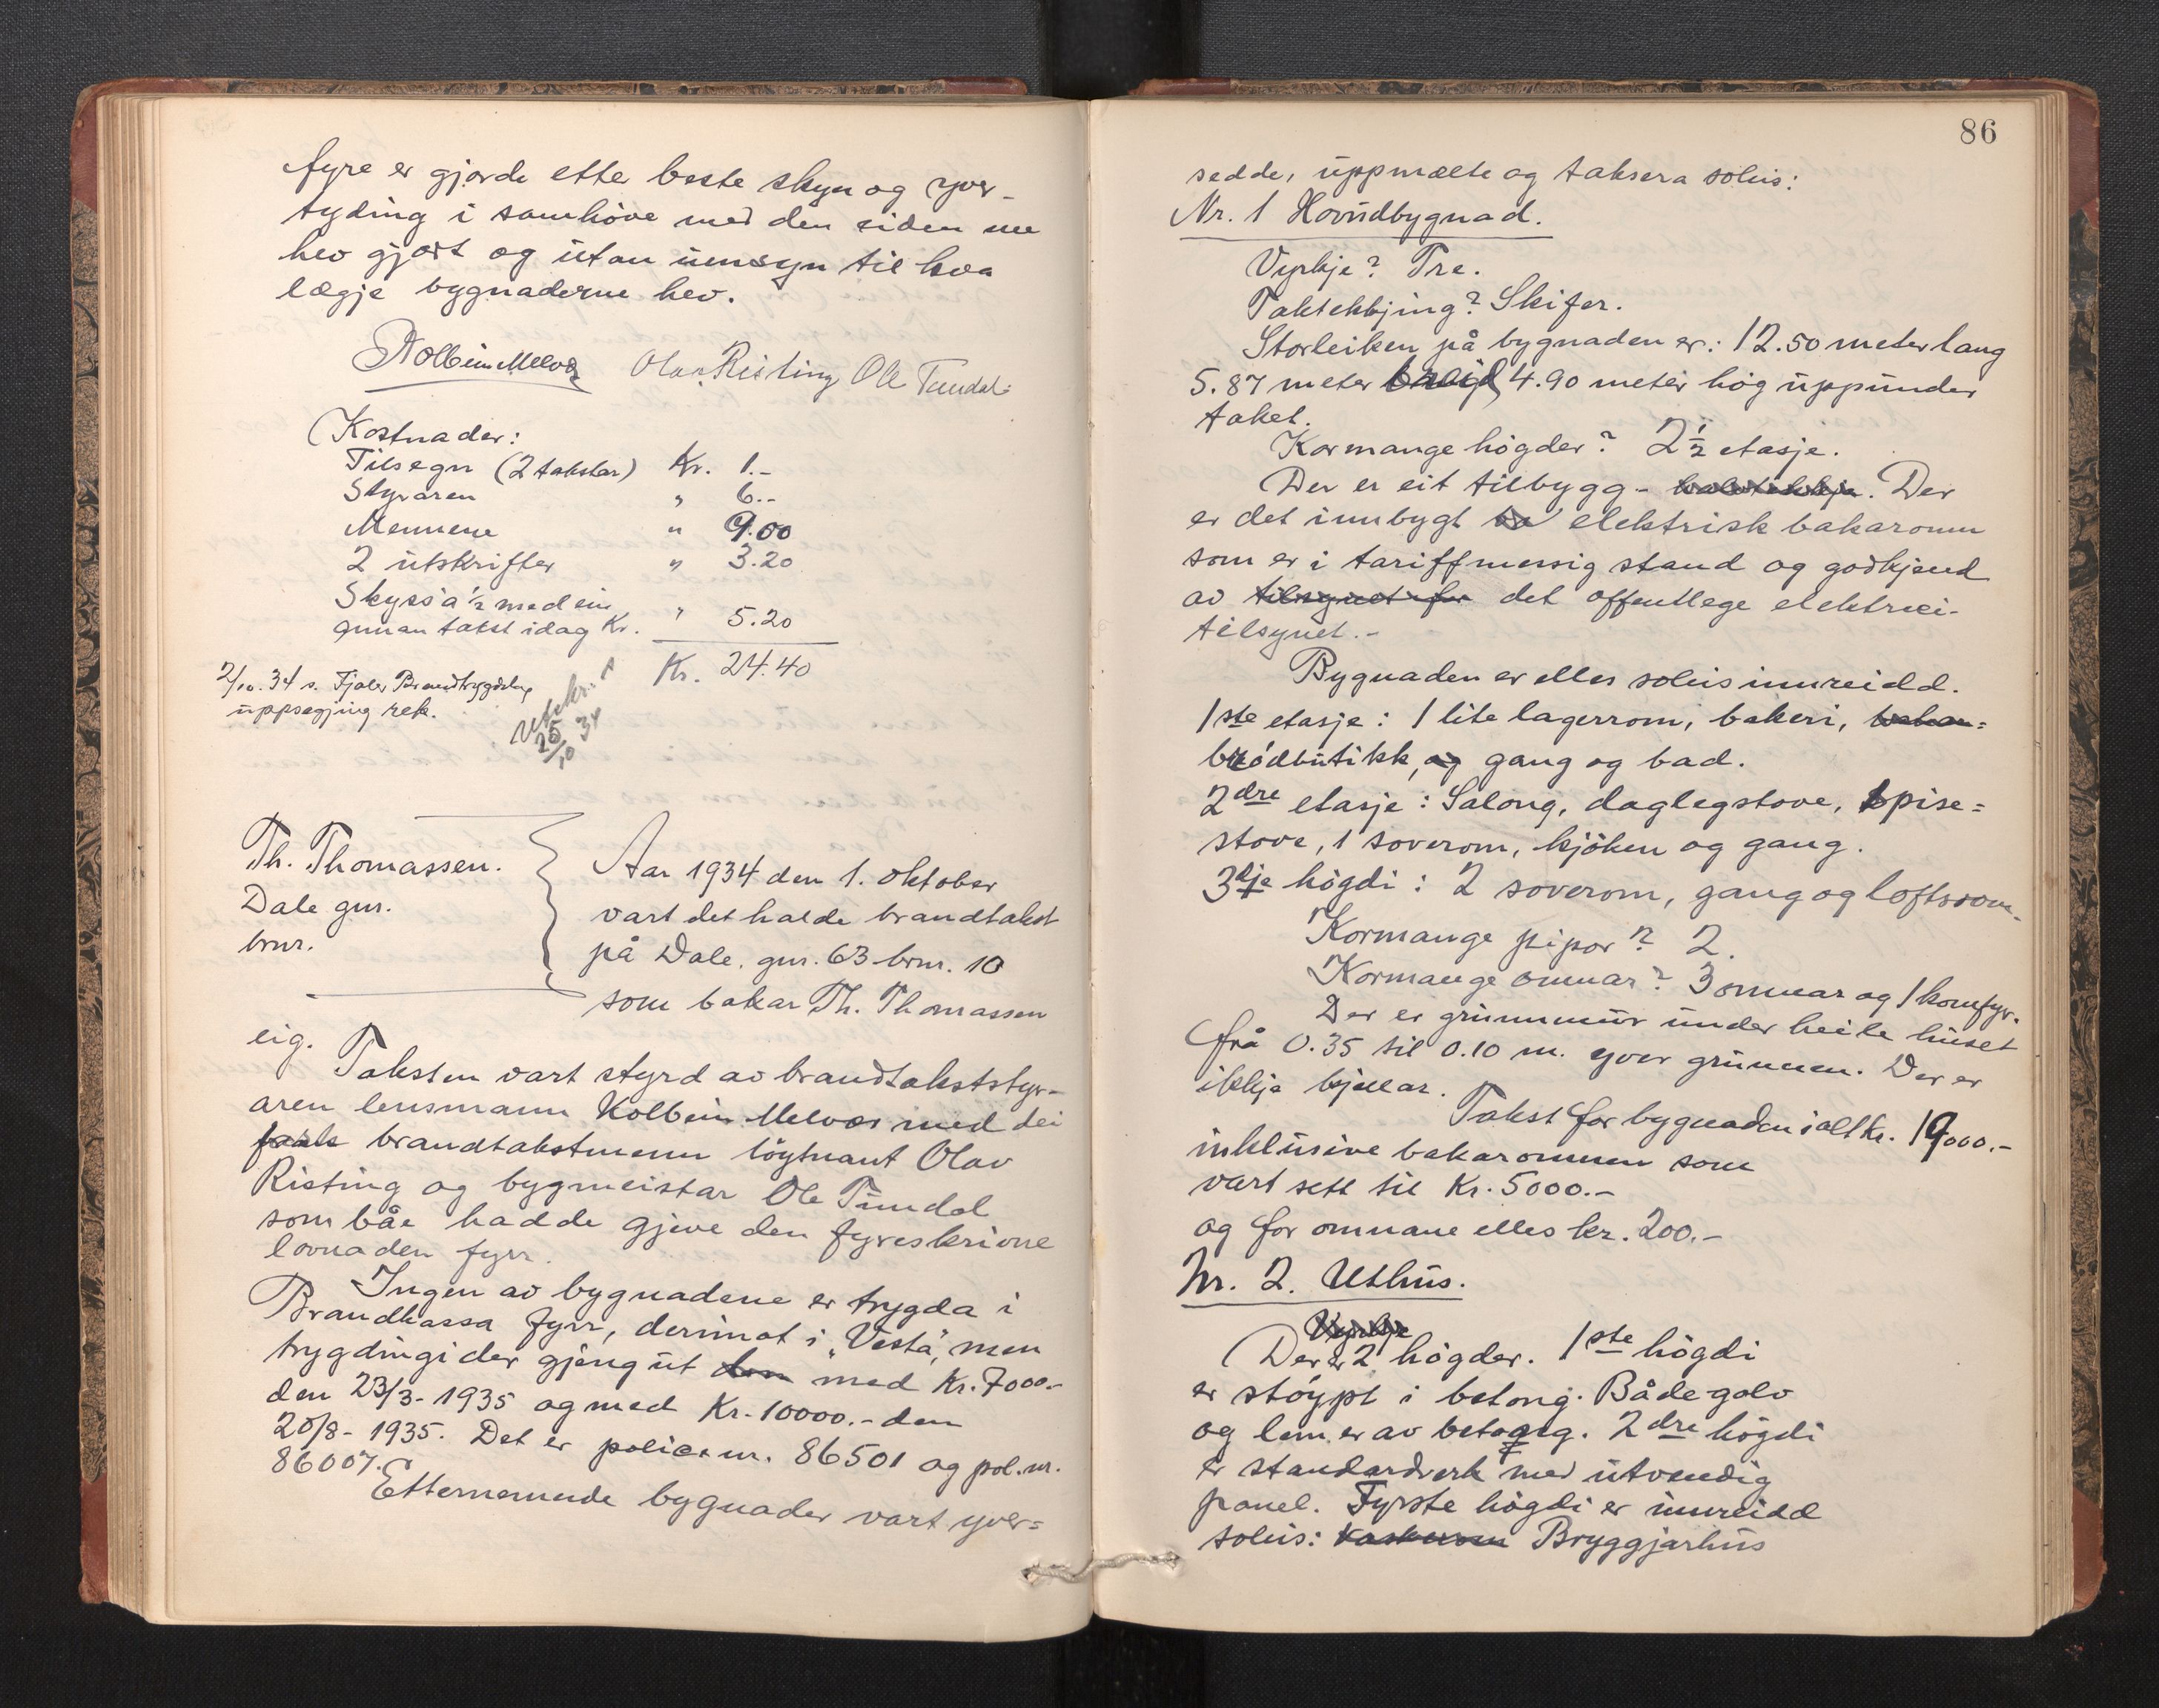 fyre er gjorde etter beste skyn og yver-
tyding i samhøve med den eiden me
hev gjort og utan umsyn til kva
lægje bygnaderne hev.
Kolbein Melvær Olav Risting Ole Tundal
Kostnader:
Tilsegn (2 takstar) Kr. 1.-
Styraren " 6.-
Mennene " 9.00
2 utskrifter " 3.20
Skyss a ½ med ein
annan takst idag Kr. " 5.20
Kr. 24.40
2/10.34 s. Fjaler Brandtrygdelag
uppsegjing rek.
Utskr.
25/10 34
Th. Thomassen.
Dale gnr.
bnr.
Aar 1934 den 1. oktober
vart det halde brandtakst
på Dale, gnr. 63 brnr. 10
som bakar Th. Thomassen
eig.
Taksten vart styrd av brandtakststyr-
aren lensmann Kolbein Melvær med dei
brandtakstmenn løytnant Olav
Risting og bygmeistar Ole Tundal
som båe hadde gjeve den fyreskrivne
lovnaden fyrr.
Ingen av bygnadene er trygda i
Brandkassa fyrr, derimot i "Vesta", men
trygdingi der gjeng ut den med Kr. 7000.-
den 23/3-1935 og med Kr. 10000.- den
20/8-1935. Det er police nr. 86501 og pol. nr.
86007.
Etternemnde bygnader vart yver=
86
sedde, uppmælte og taksera soleis:
Nr. 1 Hovudbygnad.
Vyrkje? Tre.
Taktekkjing? Skifer.
Storleiken på bygnaden er: 12.50 meter lang
5.87 meter breid, 4.90 meter høg uppunder
taket.
Kormange høgder? 2½ etasje.
Der er eit tilbygg - . Der
er det innbygt ba elektrisk bakaromn
som er i tariffmessig stand og godkjend
av tilsynet for det offentlege elektrisi-
tilsynet.-
Bygnaden er elles soleis innreidd.
1ste etasje: 1 lite lagerrom, bakeri, bakar=
brødbutikk, og gang og bad.
2dre etasje: Salong, daglegstove, spise=
stove, 1 soverom, kjøken og gang.
3dje høgdi: 2 soverom, gang og loftsrom.
Kormange pipor? 2.
Kormange omnar? 3 omnar og 1 komfyr.
Der er grunnmur under heile huset
frå 0.35 til 0.10 m. yver grunnen. Der er
ikkje kjellar.
Takst for bygnaden i alt kr. 19000.-
inklusive bakaromnen som
vart sett til Kr. 5000.-
og for omnane elles kr. 200.-
Nr. 2. Uthus.
Vyrkje
Der er 2 høgder. 1ste høgdi
er støypt i betong. Både golv
og lem er av betong. 2dre høgdi
er standardverk med utvendig
panel. Fyrste høgdi er innreidd
soleis: Vaskerom Bryggjarhus